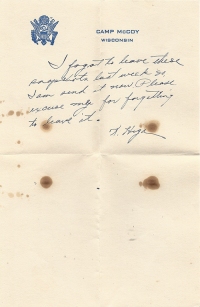 CAMP McCOY
WISCONSIN
I forgot to leave these
last week so
I am send it now Please
excuse me for forgetting
to leave it.